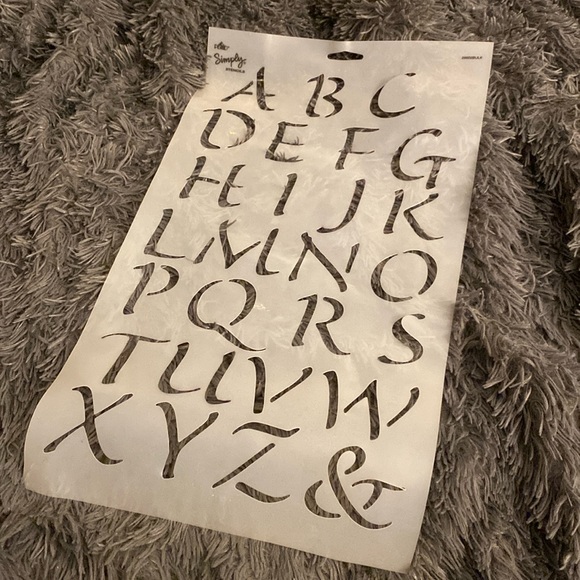 Simply
STENCILS
A B C
D E F G
H I J K
L M N O
P Q R S
T U V W
X Y Z &